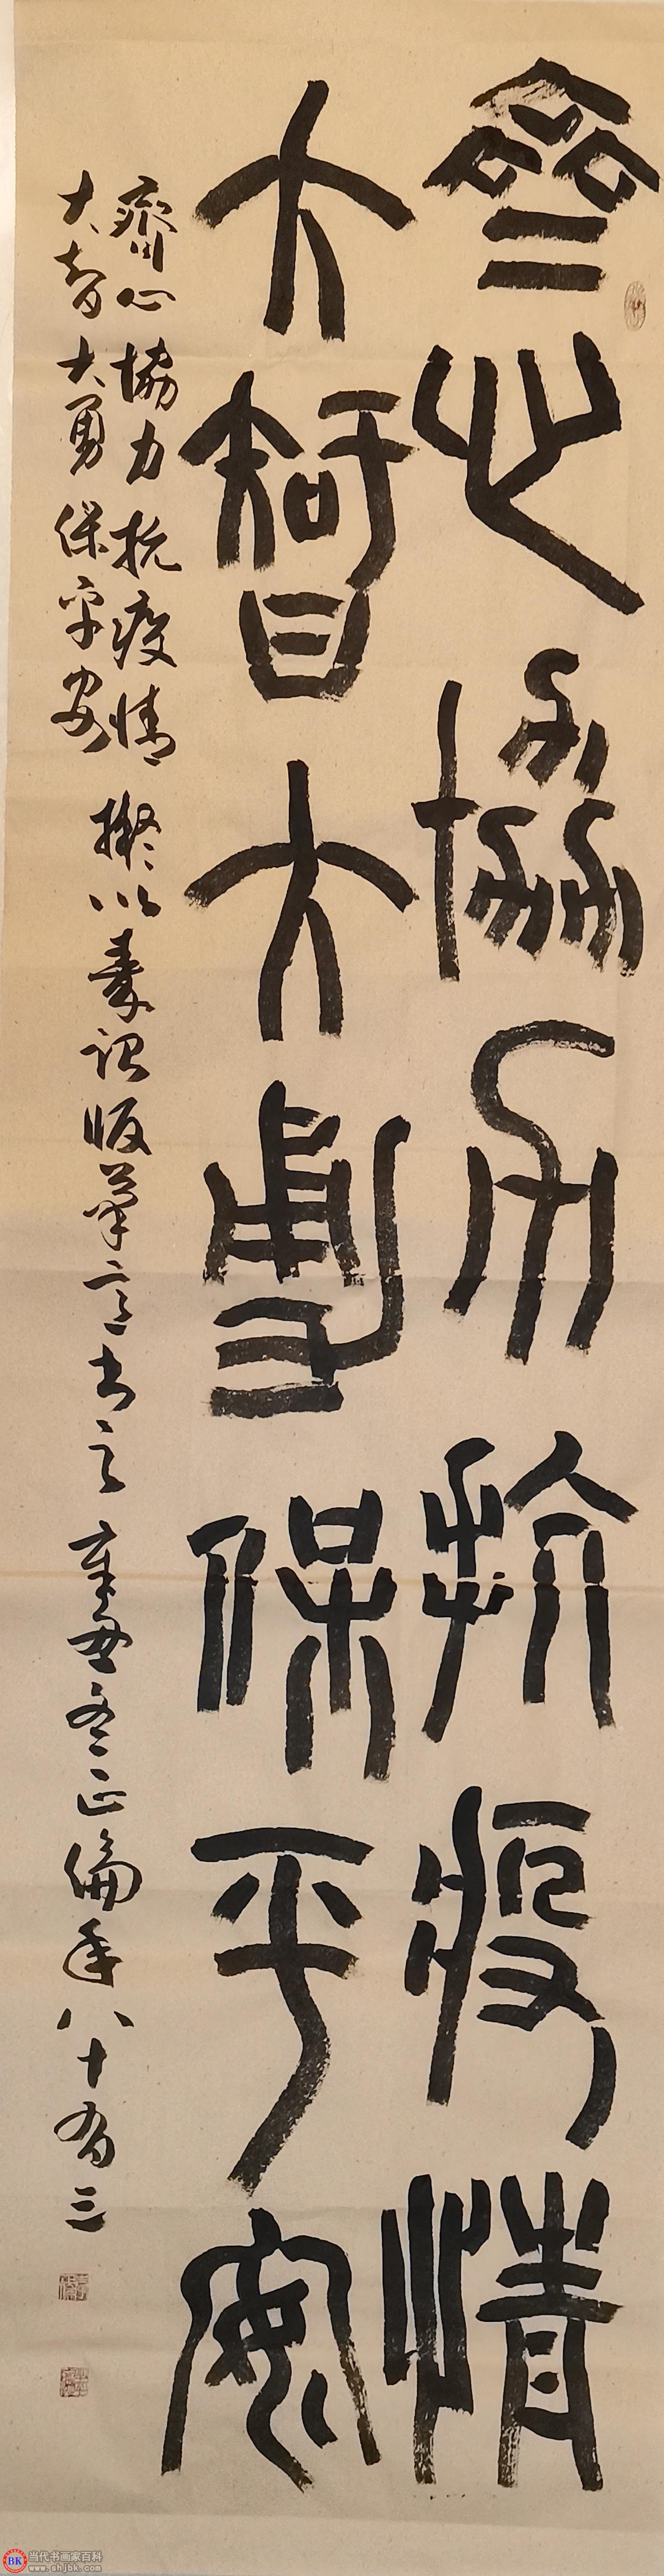 齊心協力抗疫情
大智大勇保平安
齊心協力抗疫情
大智大勇保平安 擬以秦詔版筆意書之 辛丑冬正倫年八十有三
当代书画家百科
www.shjbk.com
BK